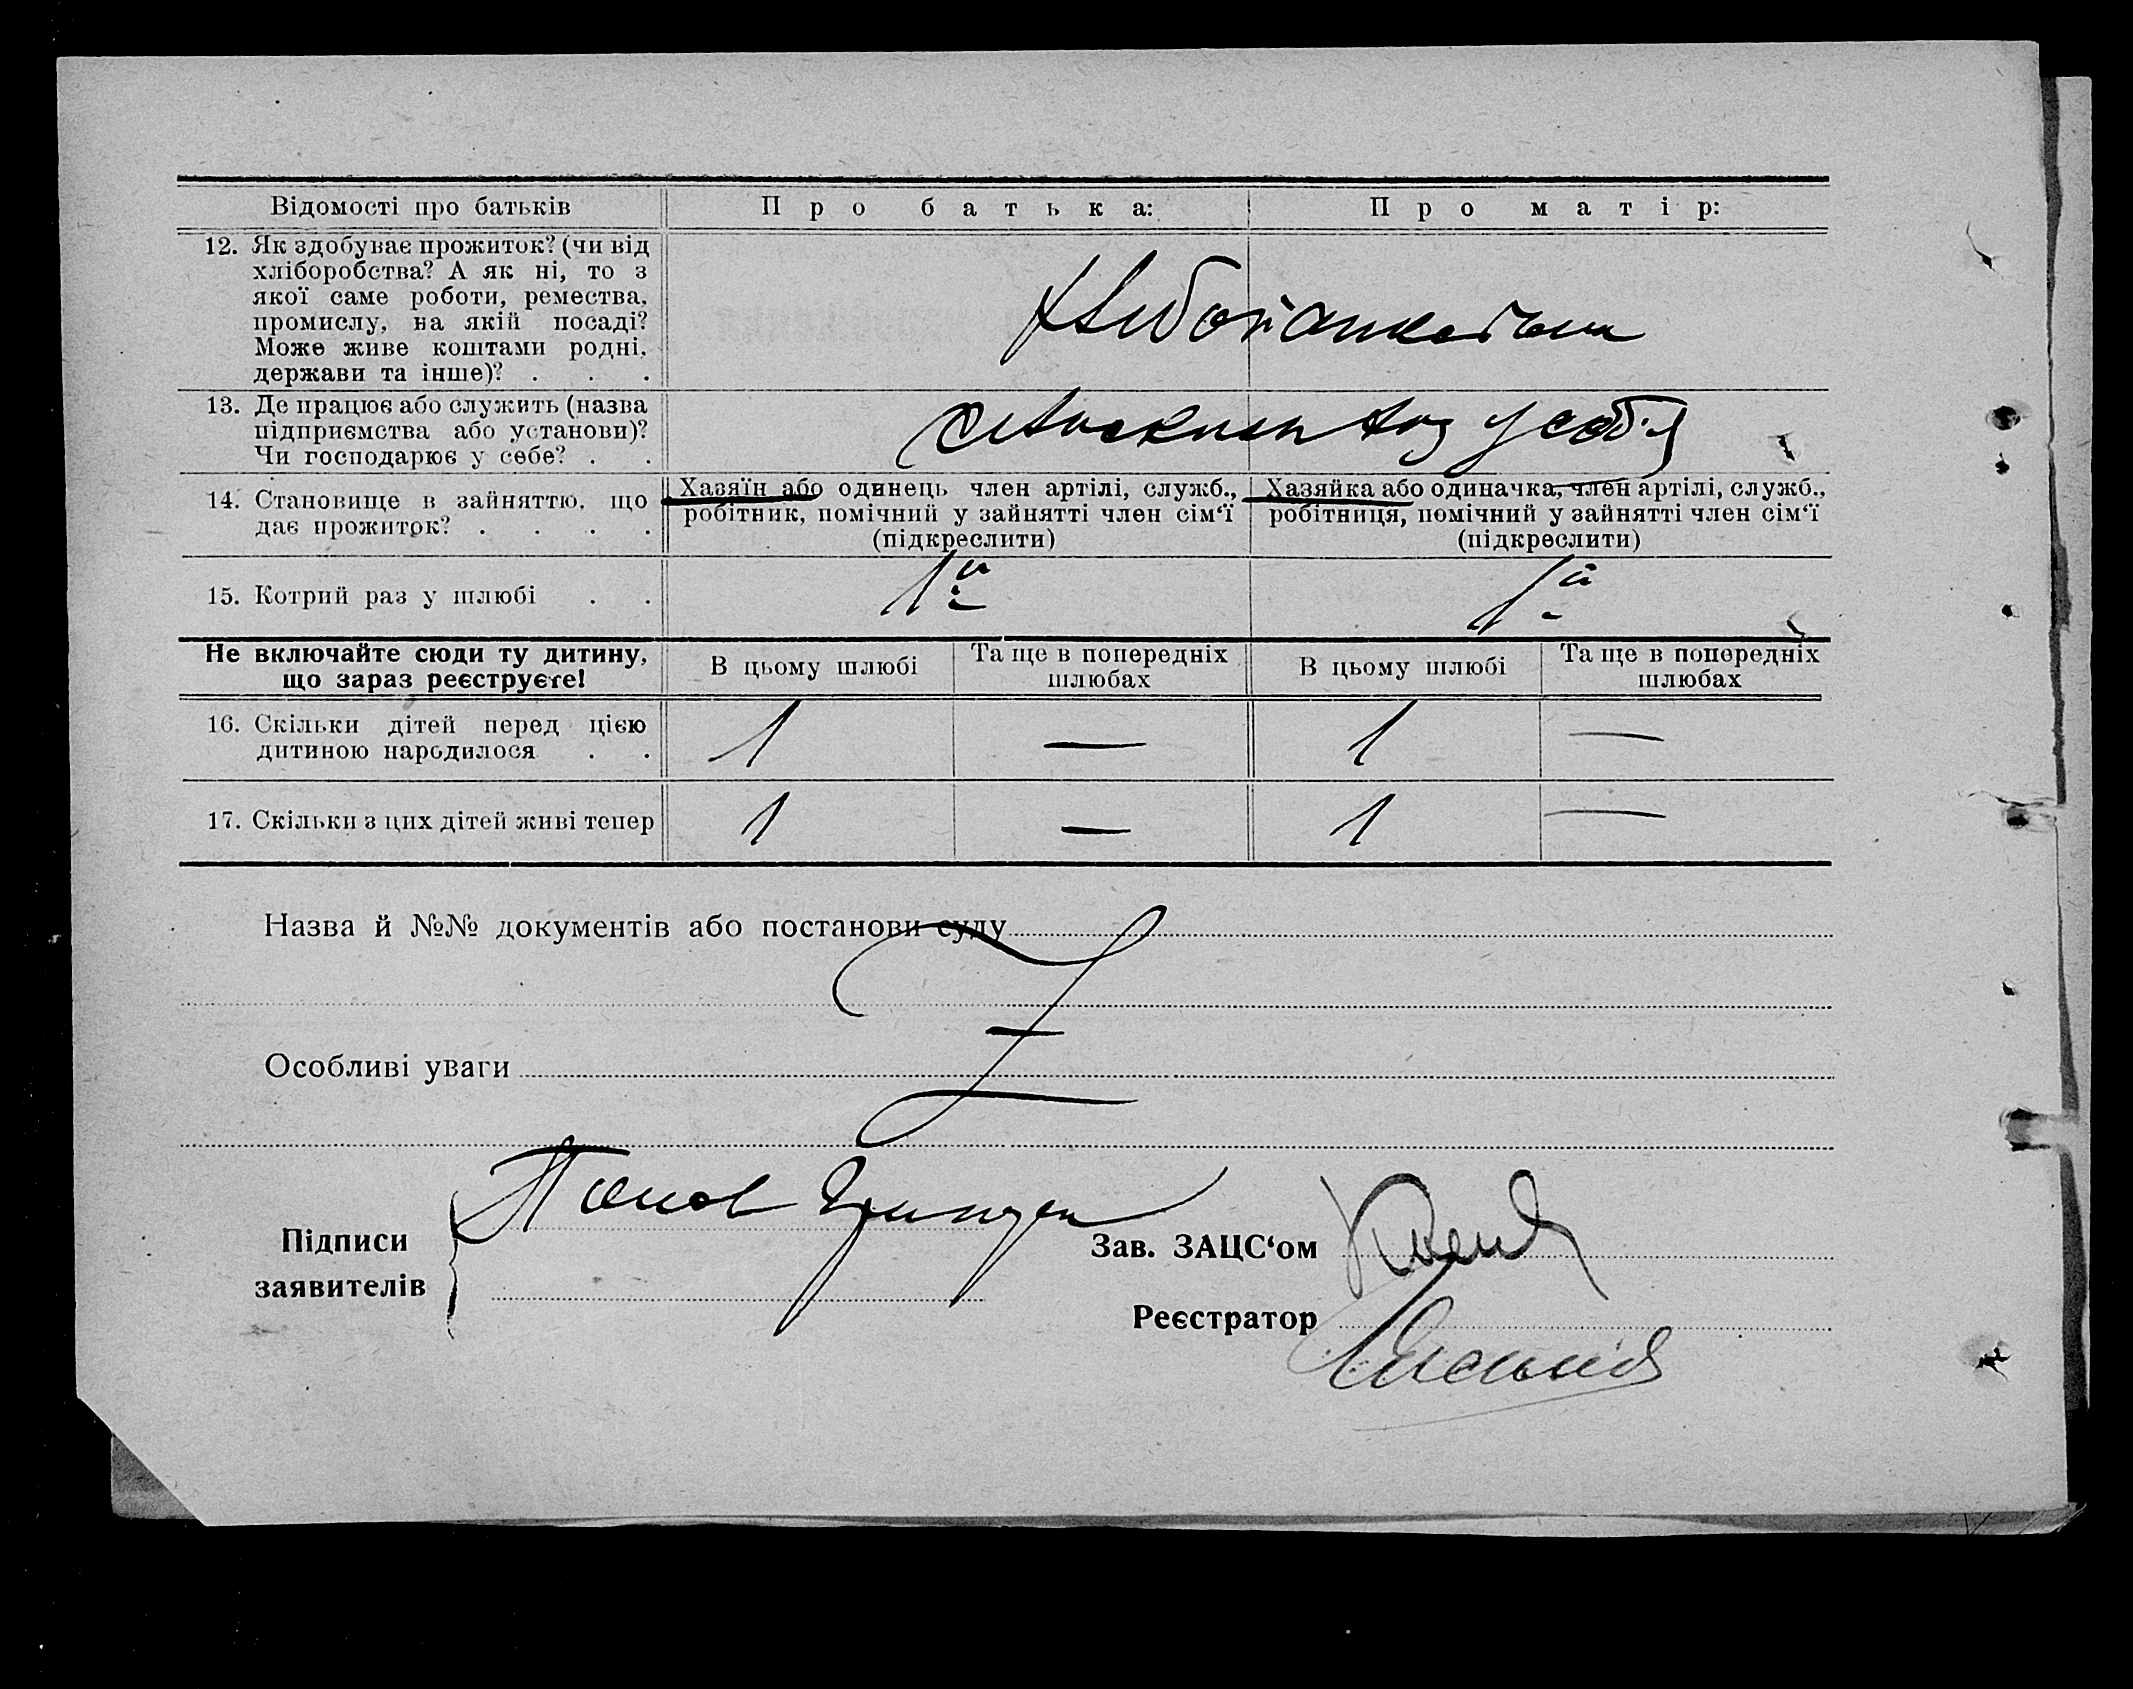 Відомості про батьків
Про батька:
Про матір:
12. Як здобуває прожиток? (чи від
хліборобства? А як ні, то з
якої саме роботи, ремества,
промислу, на якій посаді?
Може живе коштами родні,
держави та інше)? . . .
13. Де працює або служить (назва
підприємства або установи)?
Чи господарює у себе? . .
у собі
14. Становище в зайняттю, що
дає прожиток? . . . .
Хазяїн або одинець член артілі, служб.,
робітник, помічний у зайнятті член сім‘ї
(підкреслити)
Хазяйка або одиначка, член артілі, служб.,
робітниця, помічний у зайнятті член сім‘ї
(підкреслити)
15. Котрий раз у шлюбі . .
1й
1й
Не включайте сюди ту дитину,
що зараз реєструєте!
В цьому шлюбі
Та ще в попередніх
шлюбах
В цьому шлюбі
Та ще в попередніх
шлюбах
16. Скільки дітей перед цією
дитиною народилося . .
1 — 1 —
17. Скільки з цих дітей живі тепер
1 — 1 —
Назва й №№ документів або постанови суду
Особливі уваги
Підписи
заявителів
Зав. ЗАЦС‘ом
Реєстратор